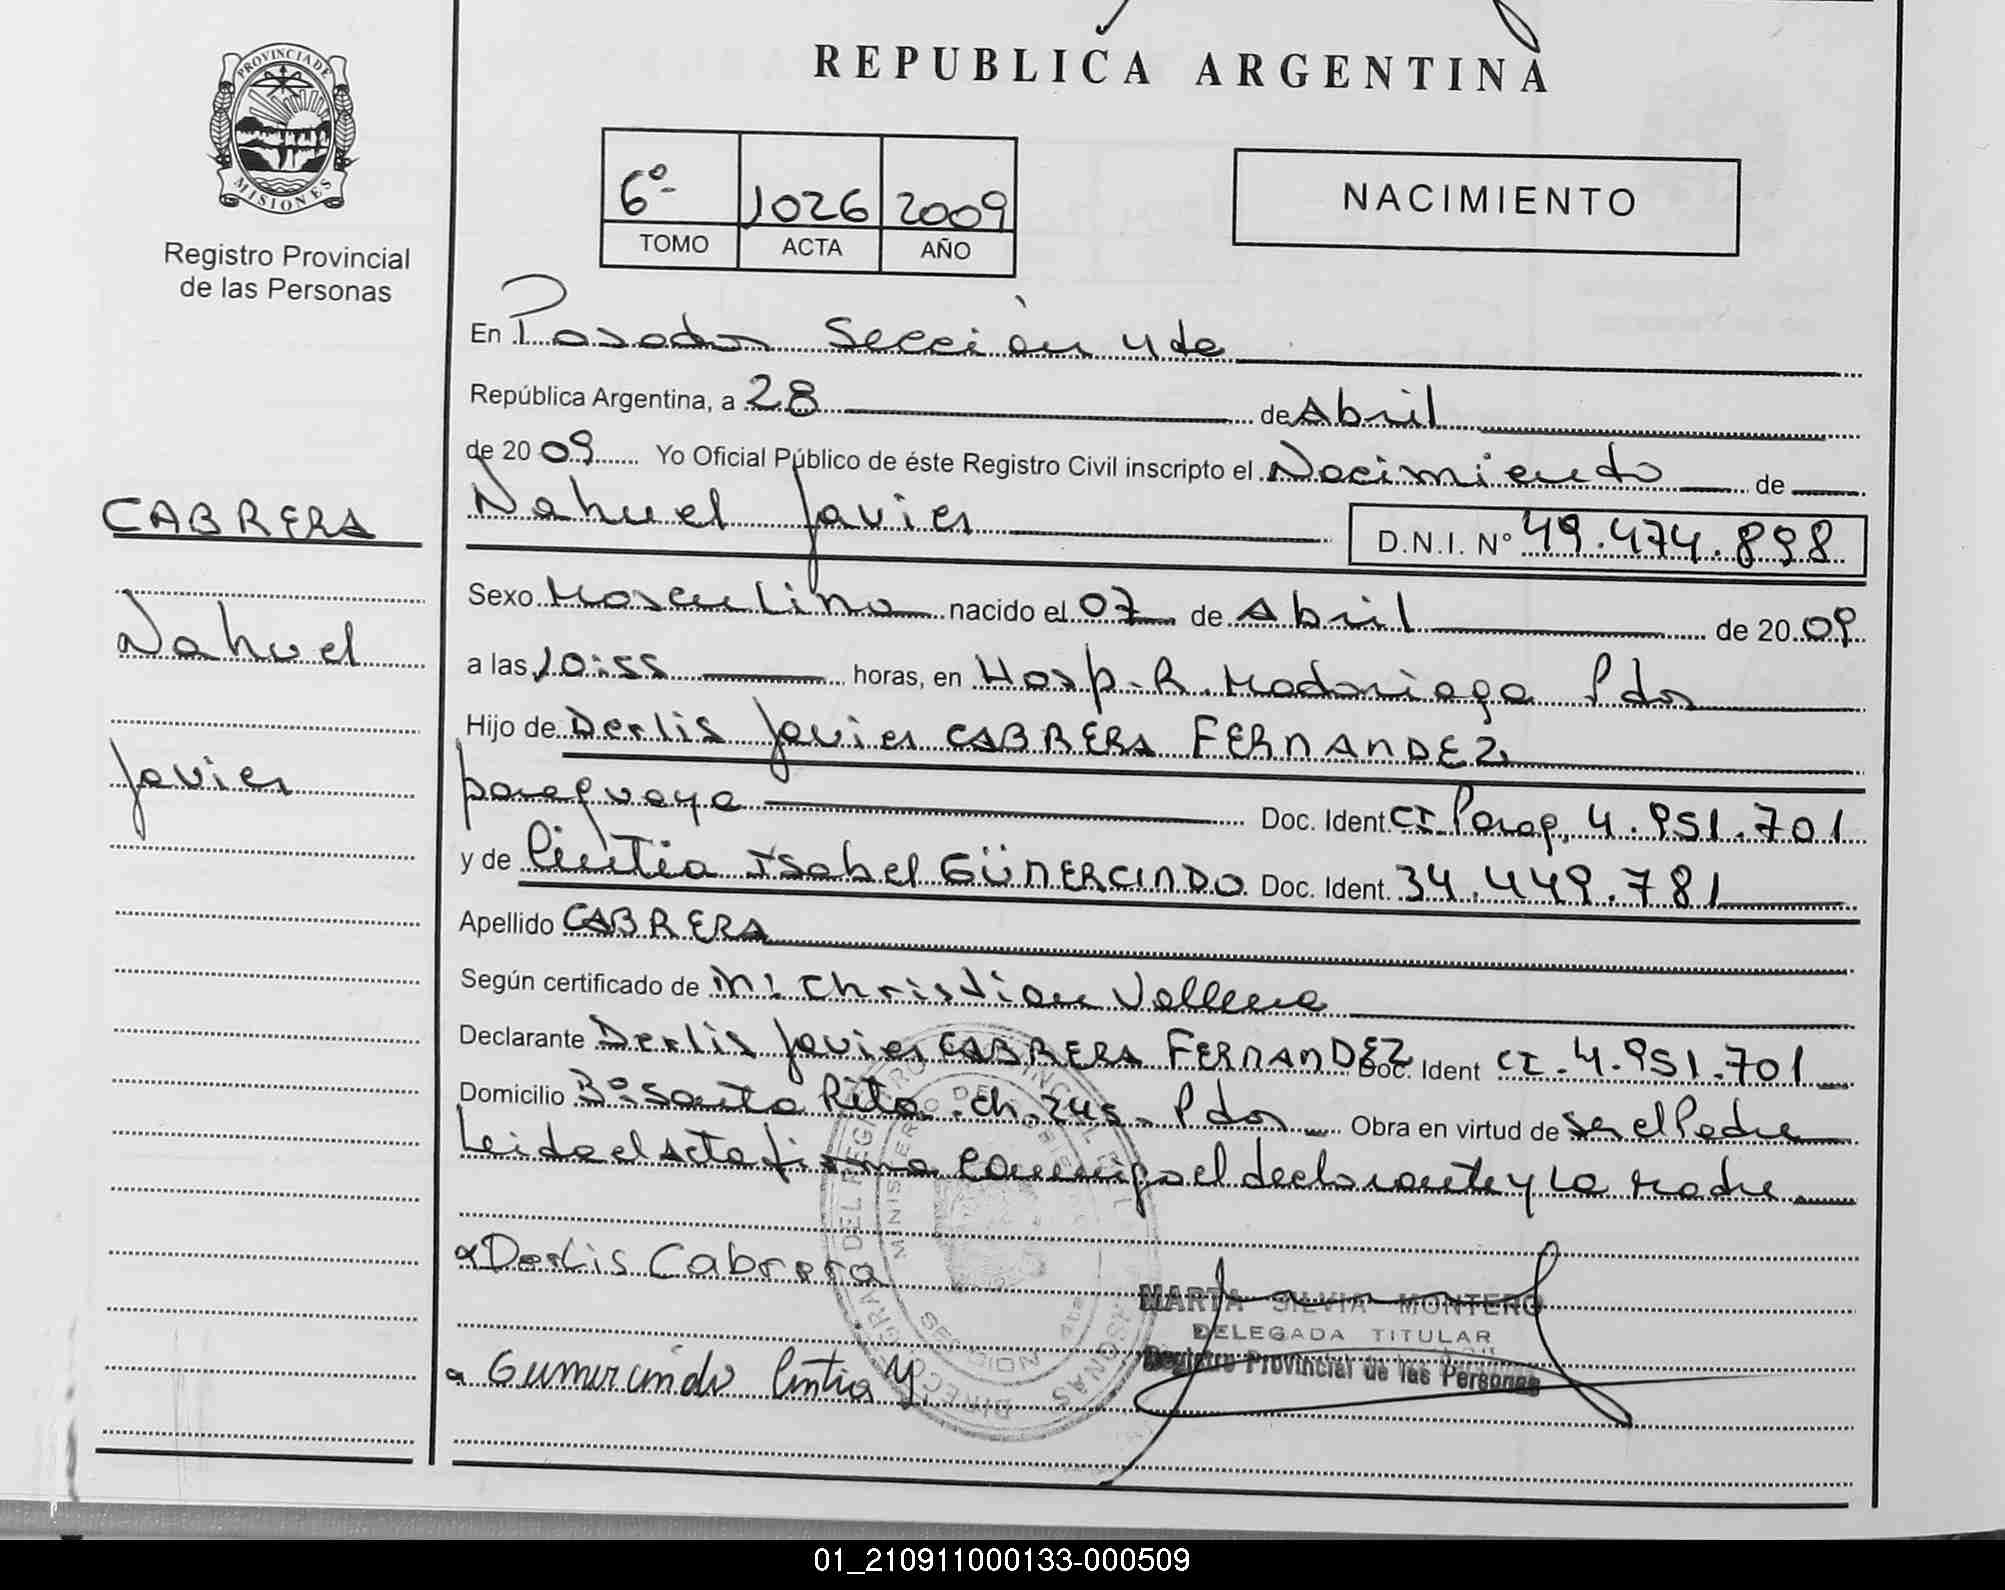 REPUBLICA ARGENTINA
PROVINCIA DE
MISIONES
Registro Provincial
de las Personas
6º 1026 2009
TOMO ACTA AÑO
NACIMIENTO
En Posadas Sección 4ta
República Argentina, a 28 de Abril
de 2009 Yo Oficial Público de éste Registro Civil inscripto el Nacimiento de
Nahuel Javier
D.N.I. Nº 49.474.898
CABRERA
Nahuel
Javier
Sexo Masculino nacido el 07 de Abril de 2009
a las 10:55 horas, en Hosp. R. Madariaga Pdas
Hijo de Derlis Javier CABRERA FERNANDEZ
paraguaya Doc. Ident. CI Parag. 4.951.701
y de Cintia Isabel GÜMERCINDO Doc. Ident. 34.449.781
Apellido CABRERA
Según certificado de M: Christian
Declarante Derlis Javier CABRERA FERNANDEZ Doc. Ident CI. 4.951.701
Domicilio Bº Santa Rita. Ch. 245. Pdas Obra en virtud de ser el Padre
Leida el Acta firma conmigo el declarante y la Madre
Derlis Cabrera
MARTA SILVIA MONTERO
DELEGADA TITULAR
Registro Provincial de las Personas
Gumercindo Cintia Y.
01_210911000133-000509